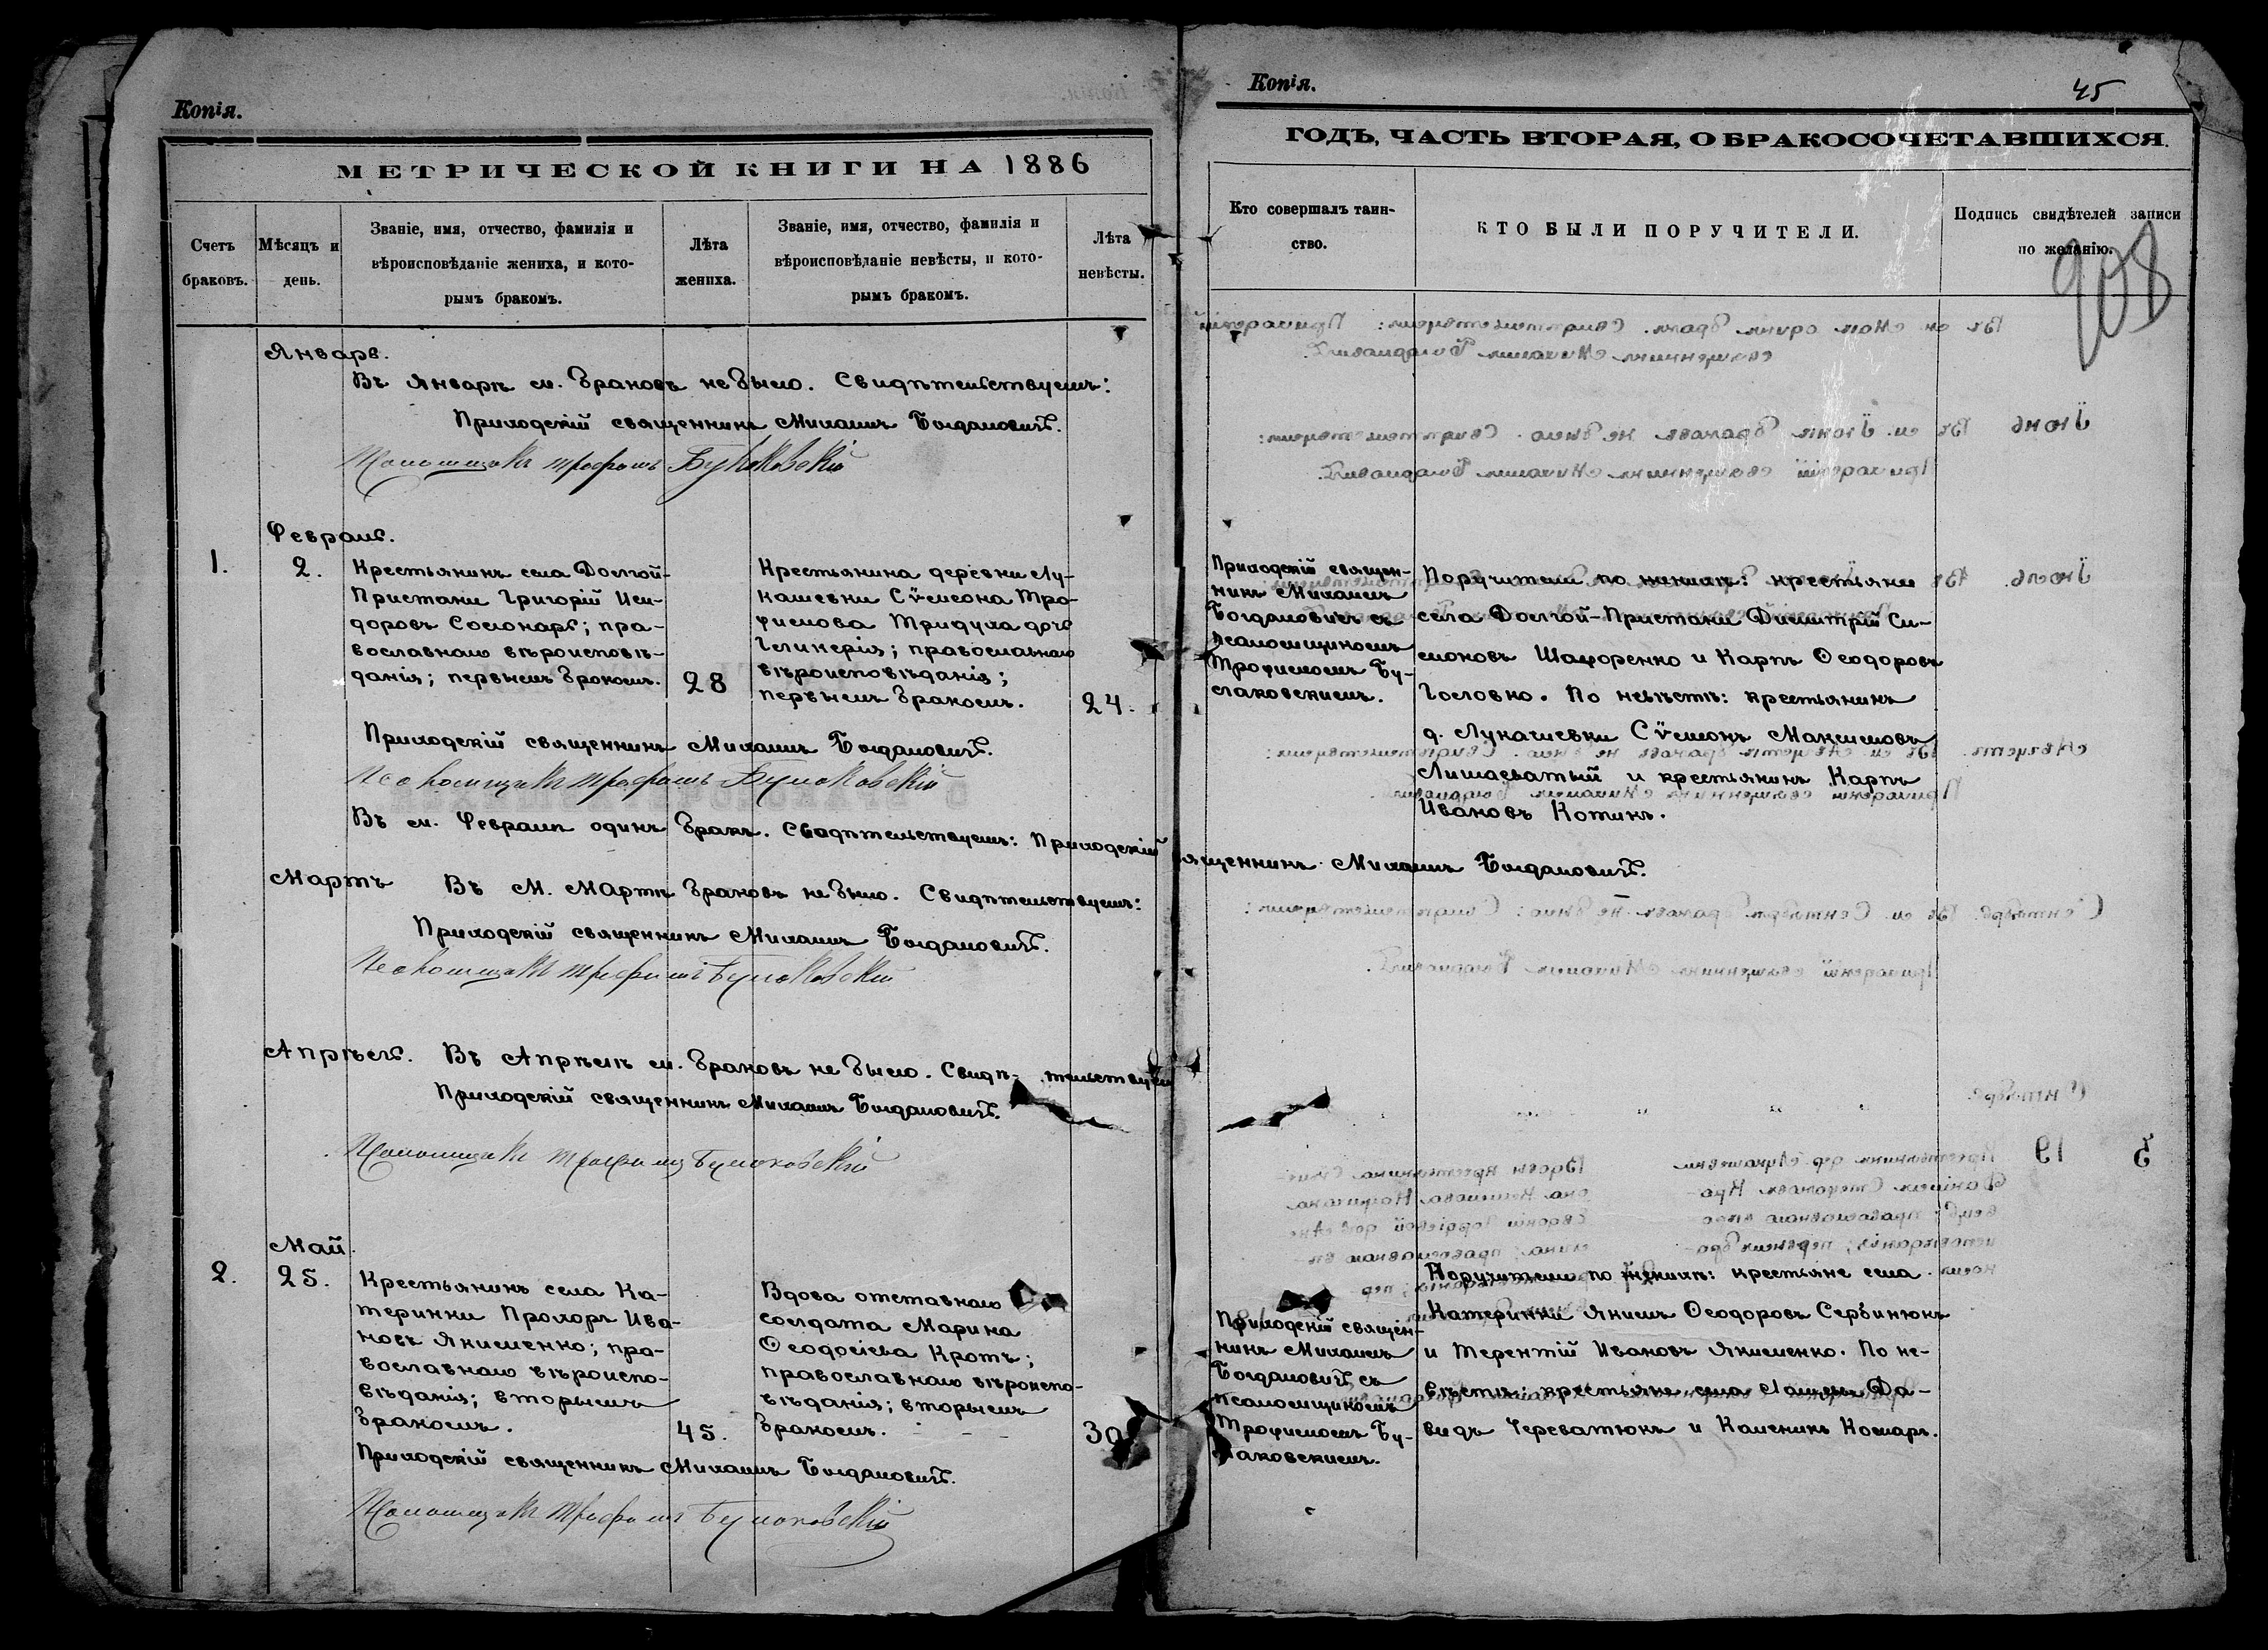 Копія.
МЕТРИЧЕСКОЙ КНИГИ НА 1886
Счетъ браковъ.
Мѣсяцъ и день.
Званіе, имя, отчество, фамилія и
вѣроисповѣданіе жениха, и кото-
рымъ бракомъ.
Лѣта жениха.
Званіе, имя, отчество, фамилія и
вѣроисповѣданіе невѣсты, и кото-
рымъ бракомъ.
Лѣта невѣсты.
Январь.
Въ январѣ м. браковъ не было. Свидѣтельствуемъ:
Приходскій священникъ Михаилъ Богдановичъ.
Псаломщикъ Трофимъ Буслаковскій
Февраль.
1.
2.
Крестьянинъ села Долгой-
Пристани Григорій Иси-
доровъ Соломарь; пра-
вославнаго вѣроисповѣ-
данія; первымъ бракомъ.
28
Крестьянина деревни Лу-
кашевки Сѵмеона Тро-
фимова Тридуха дочь
Гликерія; православнаго
вѣроисповѣданія;
первымъ бракомъ.
24.
Приходскій священникъ Михаилъ Богдановичъ.
Псаломщикъ Трофимъ Буслаковскій
Въ м. Февралѣ одинъ бракъ. Свидѣтельствуемъ: Приходскій священникъ Михаилъ Богдановичъ.
Мартъ
Въ м. Мартѣ браковъ не было. Свидѣтельствуемъ:
Приходскій священникъ Михаилъ Богдановичъ.
Псаломщикъ Трофимъ Буслаковскій
Апрѣль. Въ Апрѣлѣ м. браковъ не было. Свидѣ-тельствуем
Приходскій священникъ Михаилъ Богдановичъ.
Псаломщикъ Трофимъ Буслаковскій
Май.
2.
25.
Крестьянинъ села Ка-
теринки Прохоръ Ива-
новъ Якименко; пра-
вославнаго вѣроиспо-
вѣданія; вторымъ
бракомъ.
45.
Вдова отставнаго
солдата Марина
Ѳеодосіева Кротъ;
православнаго вѣроиспо-
вѣданія; вторымъ
бракомъ.
39
Приходскій священникъ Михаилъ Богдановичъ.
Псаломщикъ Трофимъ Буслаковскій
Копія.
45
ГОДЪ, ЧАСТЬ ВТОРАЯ, О БРАКОСОЧЕТАВШИХСЯ.
Кто совершалъ таин-
ство.
КТО БЫЛИ ПОРУЧИТЕЛИ.
Подпись свидѣтелей записи
по желанію.
908
Приходскій священ-
никъ Михаилъ
Богдановичъ съ
псаломщикомъ
Трофимомъ Бу-
слаковскимъ.
Поручители по женихѣ: крестьяне
села Долгой-Пристани Димитрій Си-
моновъ Шафоренко и Карпъ Ѳеодоровъ
Гословко. По невѣстѣ: крестьянинъ
д. Лукашевки Сѵмеонъ Максимовъ
Лишаеватый и крестьянинъ Карпъ
Ивановъ Котикъ.
Приходскій священ-
никъ Михаилъ
Богдановичъ съ
псаломщикомъ
Трофимомъ Бу-
слаковскимъ.
Поручители по женихѣ: крестьяне села
Катеринки Якимъ Ѳеодоровъ Сербинюкъ
и Терентій Ивановъ Якименко. По не-
вѣстѣ: крестьяне села Да-
видъ Череватюкъ и Каленикъ Комаръ.